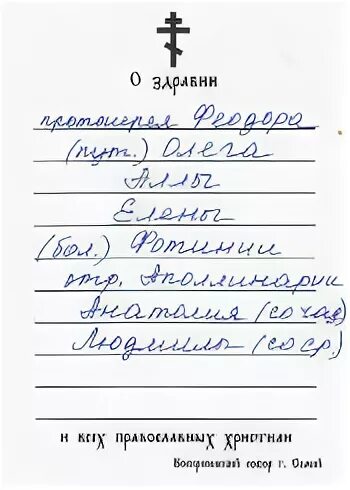 О здравии
протоиерея Феодора
(пут.) Олега
Аллы
Елены
(бол.) Фотинии
отр. Аполлинарии
Анатолия (со чад)
Людмилы (со ср.)
и всех православных христиан
собор г.